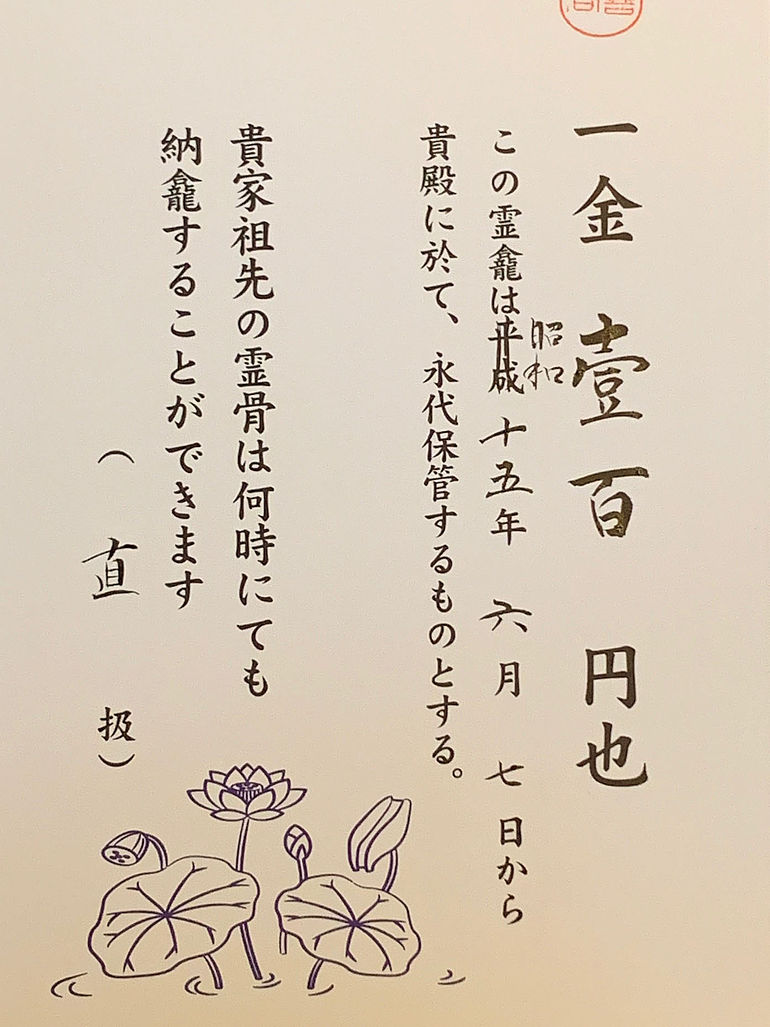 一金 壹百 円也
昭和
この霊龕は平成十五年 六月 七日から
貴殿に於て、永代保管するものとする。
貴家祖先の霊骨は何時にても
納龕することができます
（ 直 扱）